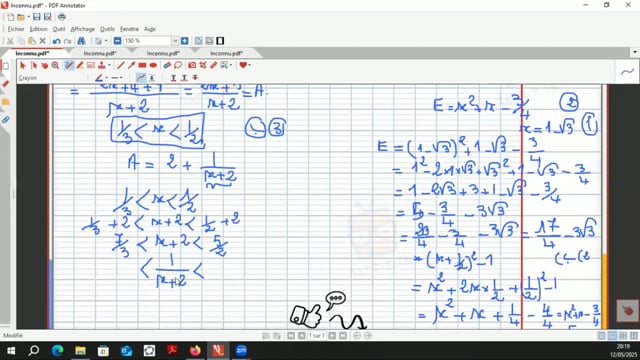 Inconnu.pdf* - PDF Annotator
Fichier Edition Outil Document Fenêtre Aide
150 %
Inconnu.pdf* Inconnu.pdf* Inconnu.pdf* Inconnu.pdf*
Crayon
= (2x+4+1)/(x+2) = (2x+5)/(x+2) = A.
1/3 < x < 1/2 3
A = 2 + 1/(x+2)
1/3 < x < 1/2
1/3 + 2 < x+2 < 1/2 + 2
7/3 < x+2 < 5/2
< 1/(x+2) <
E = x² + x - 3/4 2
x = 1 - √3 1
E = (1 - √3)² + 1 - √3 - 3/4
= 1² - 2×1×√3 + √3² + 1 - √3 - 3/4
= 1 - 2√3 + 3 + 1 - √3 - 3/4
= 5 - 3/4 - 3√3
= 20/4 - 3/4 - 3√3 = 17/4 - 3√3
* (x + 1/2)² - 1
= x² + 2x × 1/2 + (1/2)² - 1
= x² + x + 1/4 - 4/4 = x² + x - 3/4
1 sur 1
20:19
12/05/2025